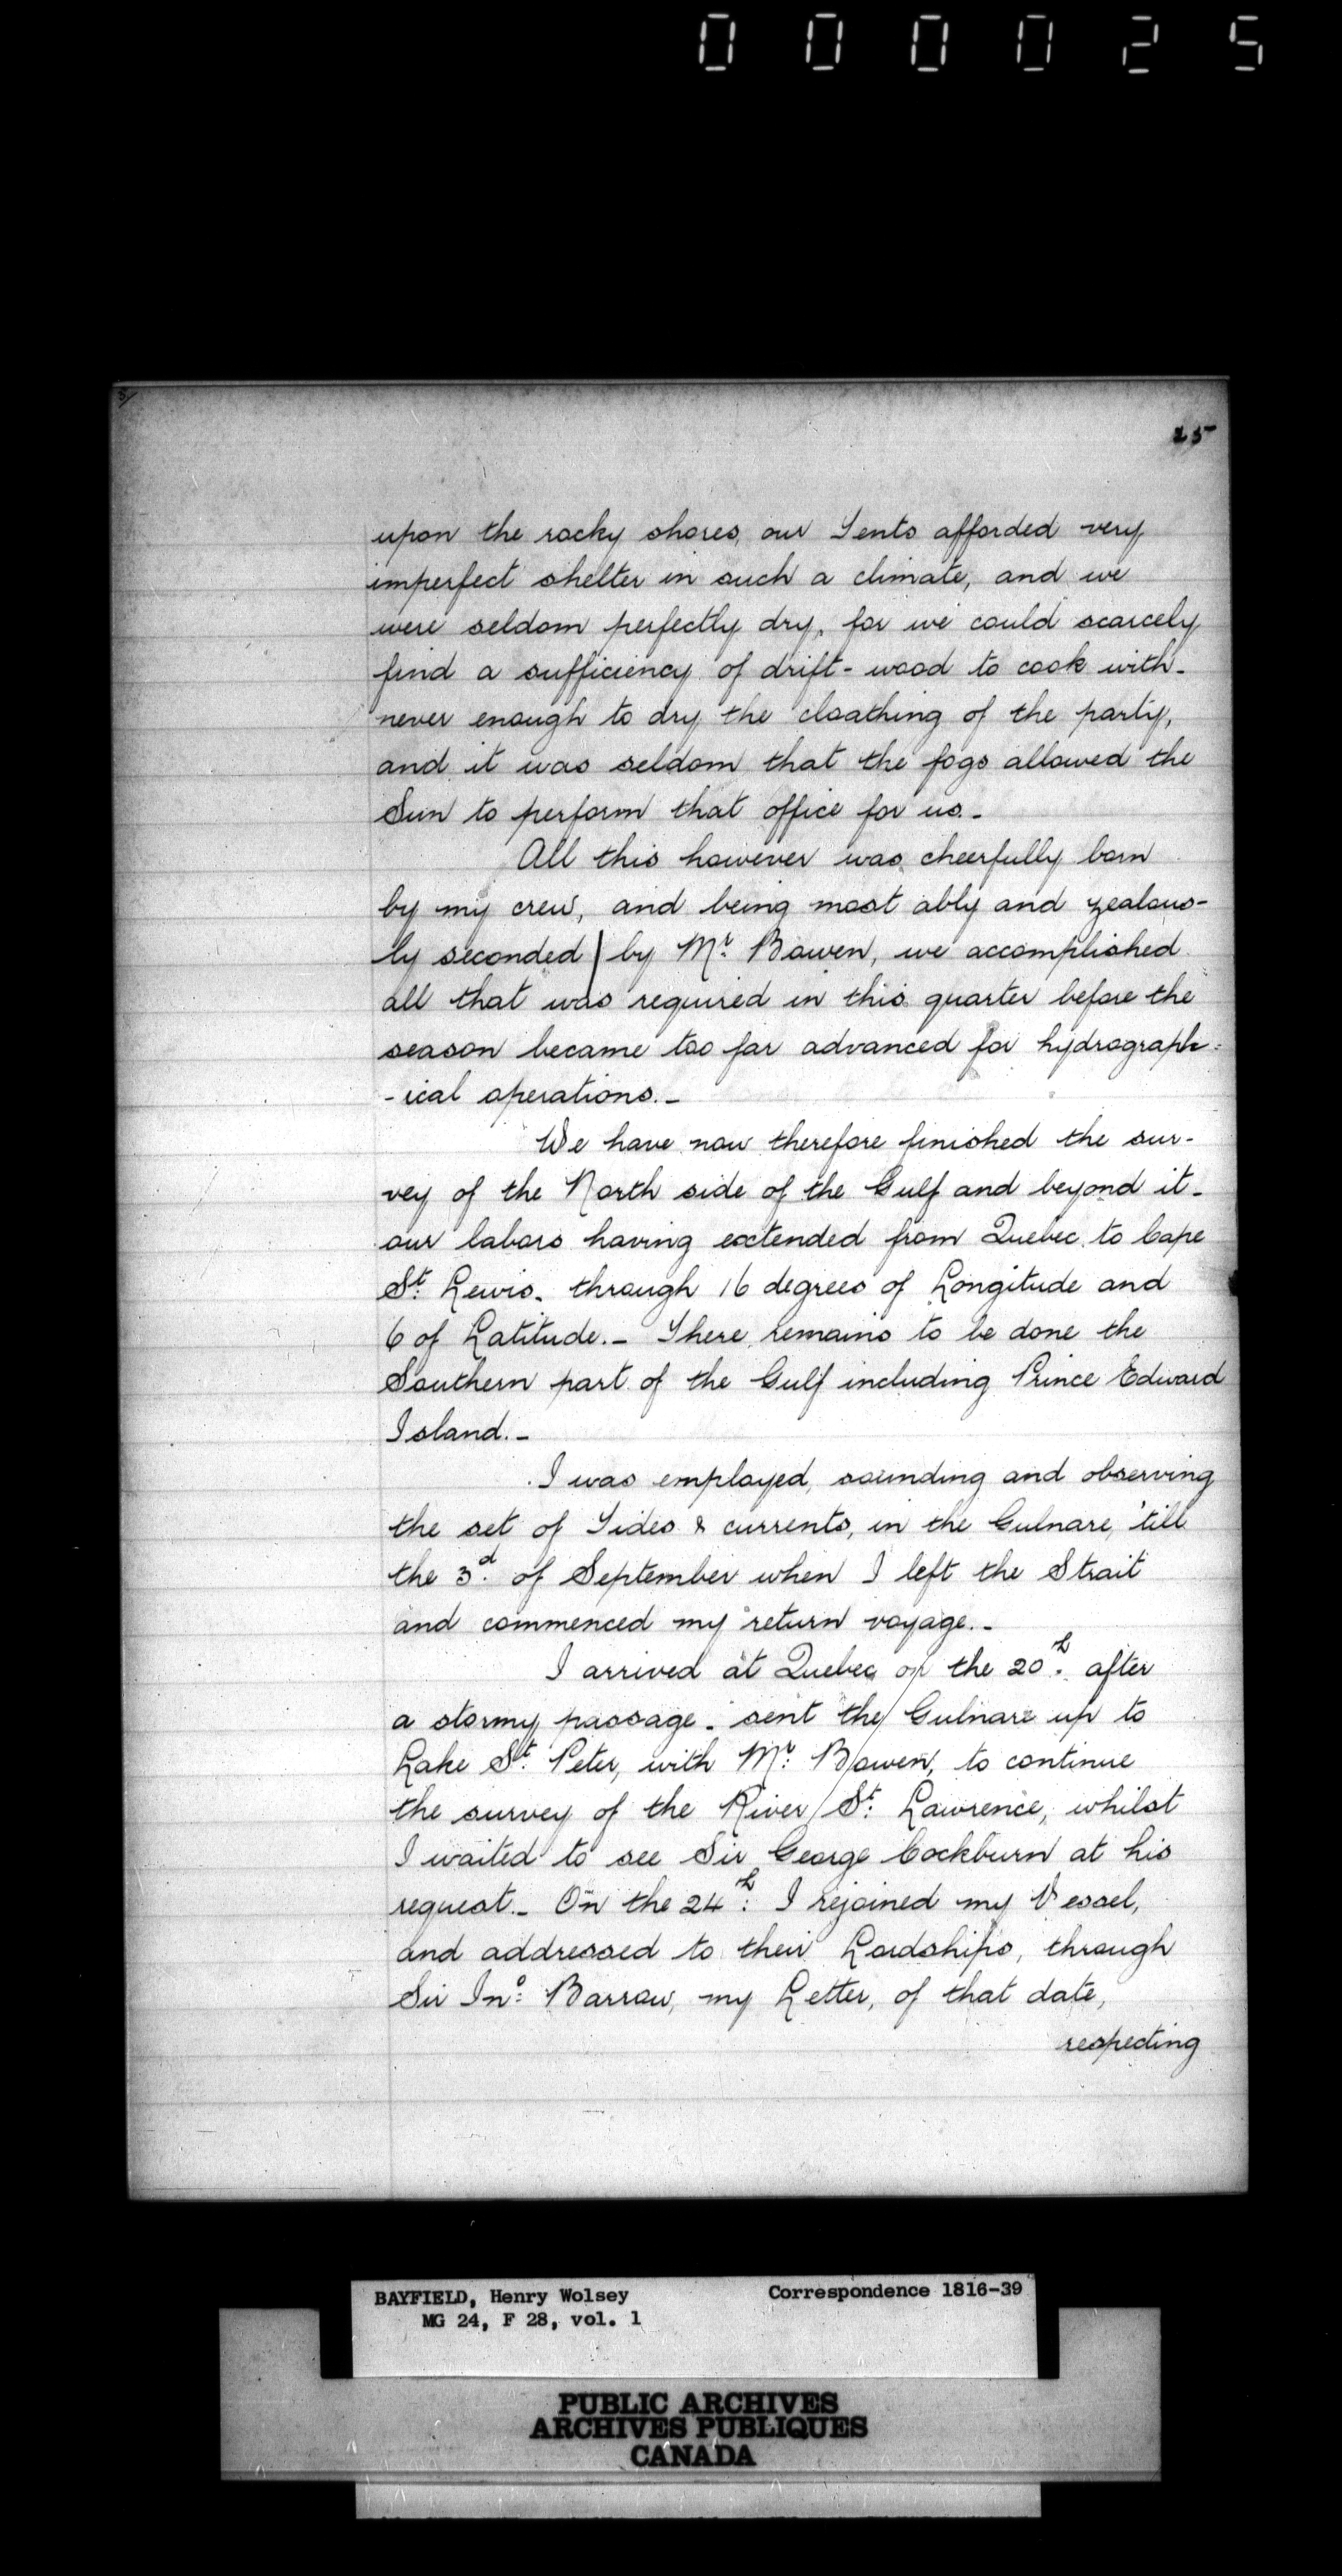 000025
5/
25
upon the rocky shores, our Tents afforded very
imperfect shelter in such a climate, and we
were seldom perfectly dry, for we could scarcely
find a sufficiency of drift-wood to cook with-
never enough to dry the cloathing of the party,
and it was seldom that the fogs allowed the
Sun to perform that office for us.-
All this however was cheerfully born
by my crew, and being most ably and zealous-
ly seconded by Mr. Bowen, we accomplished
all that was required in this quarter before the
season became too far advanced for hydrograph-
-ical operations.-
We have now therefore finished the sur-
vey of the North side of the Gulf and beyond it-
our labors having extended from Quebec to Cape
St. Lewis- through 16 degrees of Longitude and
6 of Latitude.- There remains to be done the
Southern part of the Gulf including Prince Edward
Island.-
I was employed, sounding and observing
the set of Tides & currents, in the Gulnare, 'till
the 3d. of September when I left the Strait
and commenced my return voyage.-
I arrived at Quebec on the 20h. after
a stormy passage- sent the Gulnare up to
Lake St. Peter, with Mr. Bowen, to continue
the survey of the River St. Lawrence, whilst
I waited to see Sir George Cockburn at his
request.- On the 24h: I rejoined my Vessel,
and addressed to their Lordships, through
Sir Jno: Barrow, my Letter, of that date,
respecting
BAYFIELD, Henry Wolsey Correspondence 1816-39
MG 24, F 28, vol. 1
PUBLIC ARCHIVES
ARCHIVES PUBLIQUES
CANADA